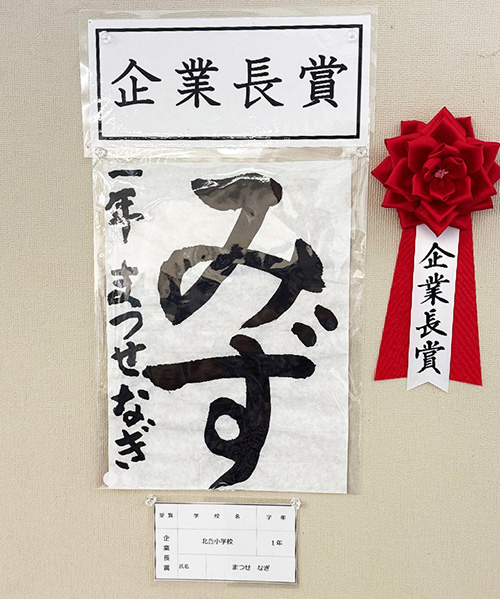 企業長賞
みず
一年 まつせなぎ
企業長賞
受賞 学校名 学年
企業長賞 北丘小学校 1年
氏名 まつせ なぎ